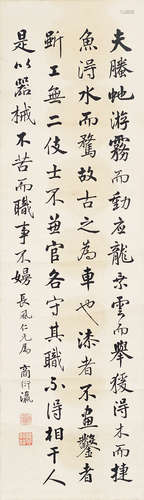 夫螣虵游霧而動應龍乘雲而舉猨得木而捷
魚得水而騖故古之為車也漆者不畫鑿者
斲工無二伎士不兼官各守其職不得相干人
是以器械不苦而職事不嫚 長風仁兄屬 商衍瀛